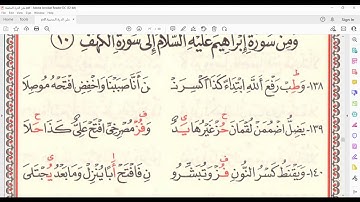 وَمِنْ سُورَةِ إِبْرَاهِيمَ عَلَيْهِ السَّلَامُ إِلَى سُورَةِ الْكَهْفِ (١٠)
١٣٨- وَطِبْ رَفْعَ اللَّهِ ابْتِدَاءً كَذَا اكْسِرَنْ نَ أَنَّا صَبَبْنَا وَاخْفِضِ افْتَحْهُ مُوصِلَا
١٣٩- يَضِلُّ اضْمُمَنْ لُقْمَانَ حُزْ غَيْرَهَا يَدٌ وَفُزْ مُصْرِخِيَّ افْتَحْ عَلَيَّ كَذَا حَلَا
١٤٠- وَيَقْنَطُ كَسْرُ النُّونِ فُزْ وَتُبَشِّرُو نِ فَافْتَحْ أَبًا يُنْزِلُ وَمَا بَعْدُ يُجْتَلَى